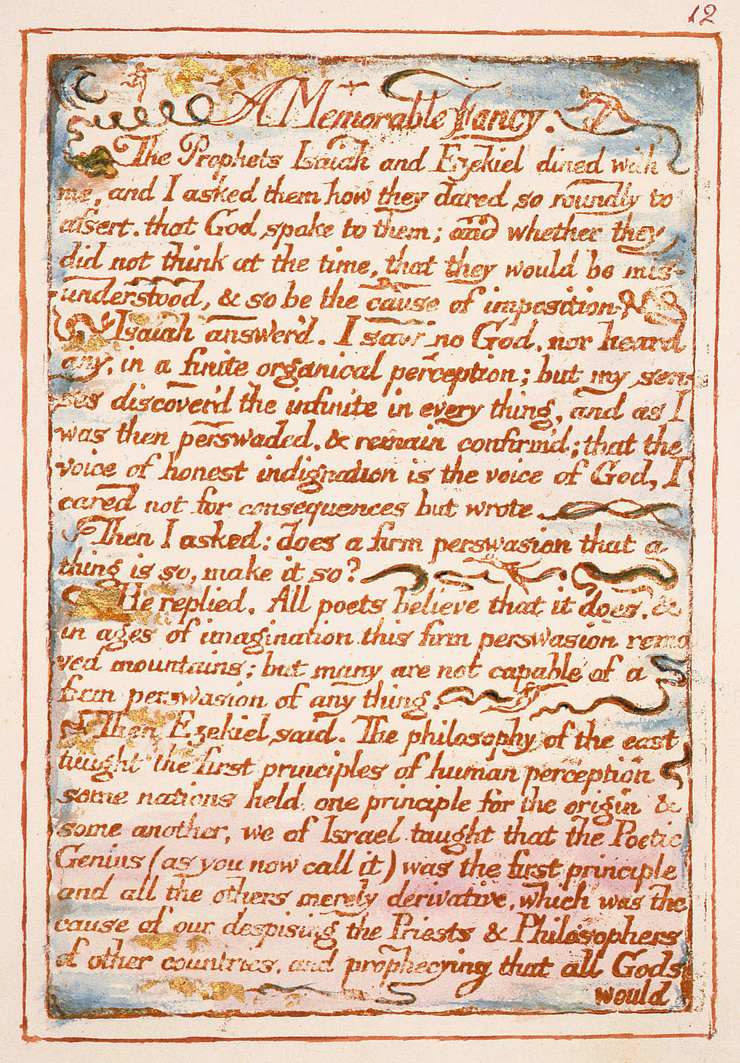 12
A Memorable Fancy.
The Prophets Isaiah and Ezekiel dined with
me, and I asked them how they dared so roundly to
assert. that God spake to them; and whether they
did not think at the time, that they would be mis-
understood, & so be the cause of imposition.
Isaiah answer'd. I saw no God, nor heard
any, in a finite organical perception; but my sen-
ses discover'd the infinite in every thing, and as I
was then perswaded, & remain confirm'd; that the
voice of honest indignation is the voice of God, I
cared not for consequences but wrote.
Then I asked: does a firm perswasion that a
thing is so, make it so?
He replied. All poets believe that it does, &
in ages of imagination this firm perswasion remo
ved mountains; but many are not capable of a
firm perswasion of any thing.
Then Ezekiel said. The philosophy of the east
taught the first principles of human perception
some nations held one principle for the origin &
some another, we of Israel taught that the Poetic
Genius (as you now call it) was the first principle
and all the others merely derivative, which was the
cause of our despising the Priests & Philosophers
of other countries, and prophecying that all Gods
would